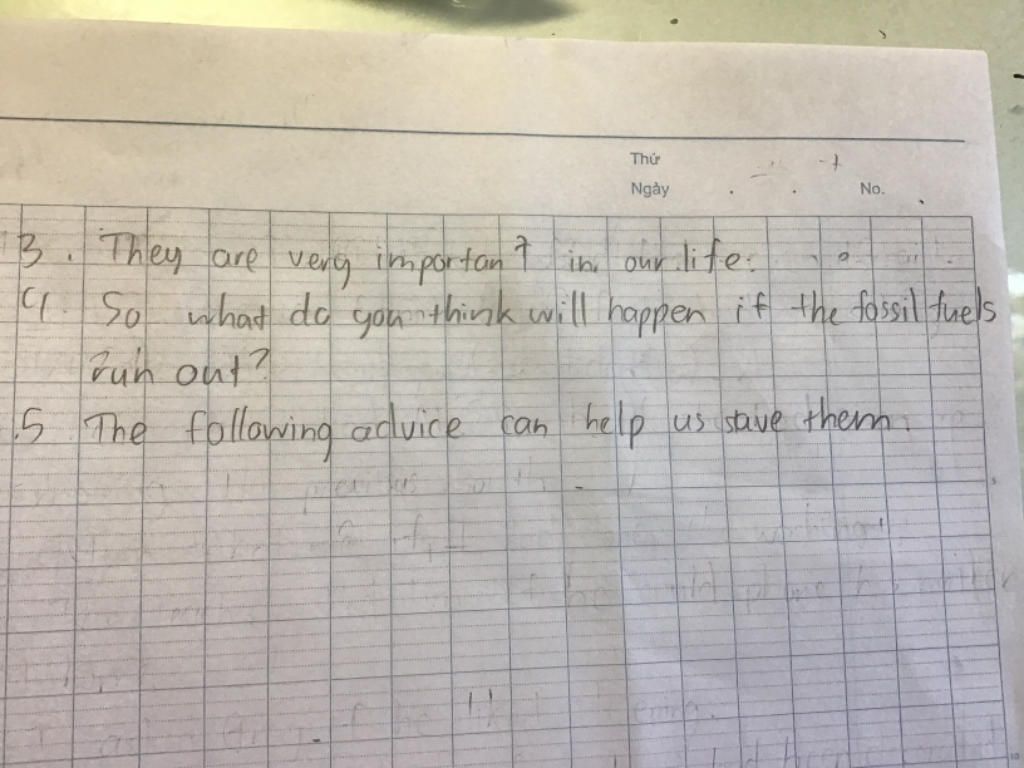 Thứ
Ngày
No.
3. They are very important in our life.
4. So what do you think will happen if the fossil fuels
run out?
5 The following advice can help us save them.